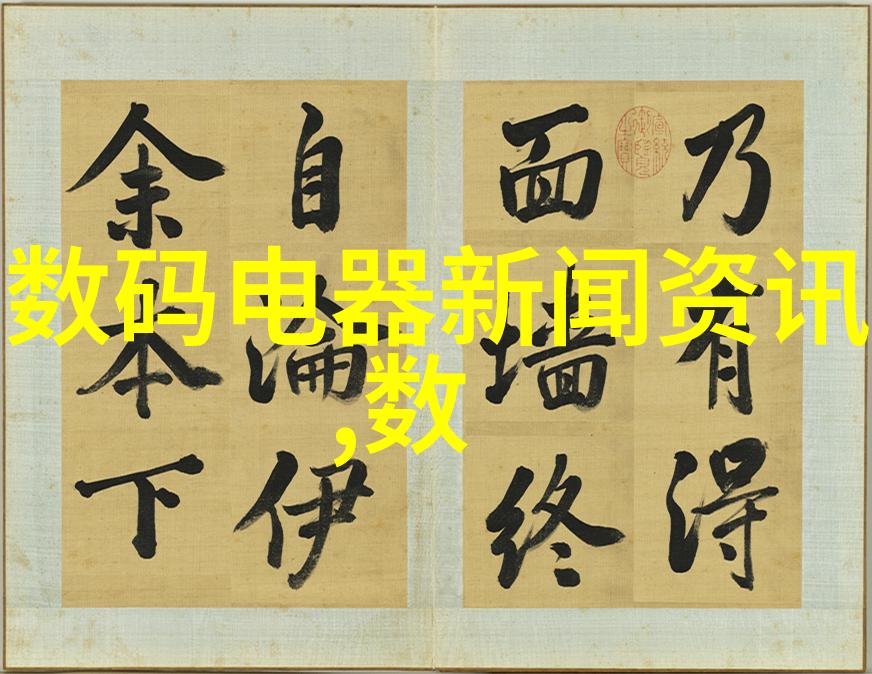 数码电器新闻资讯
,数
乃有得
面墙终
自淪伊
余本下